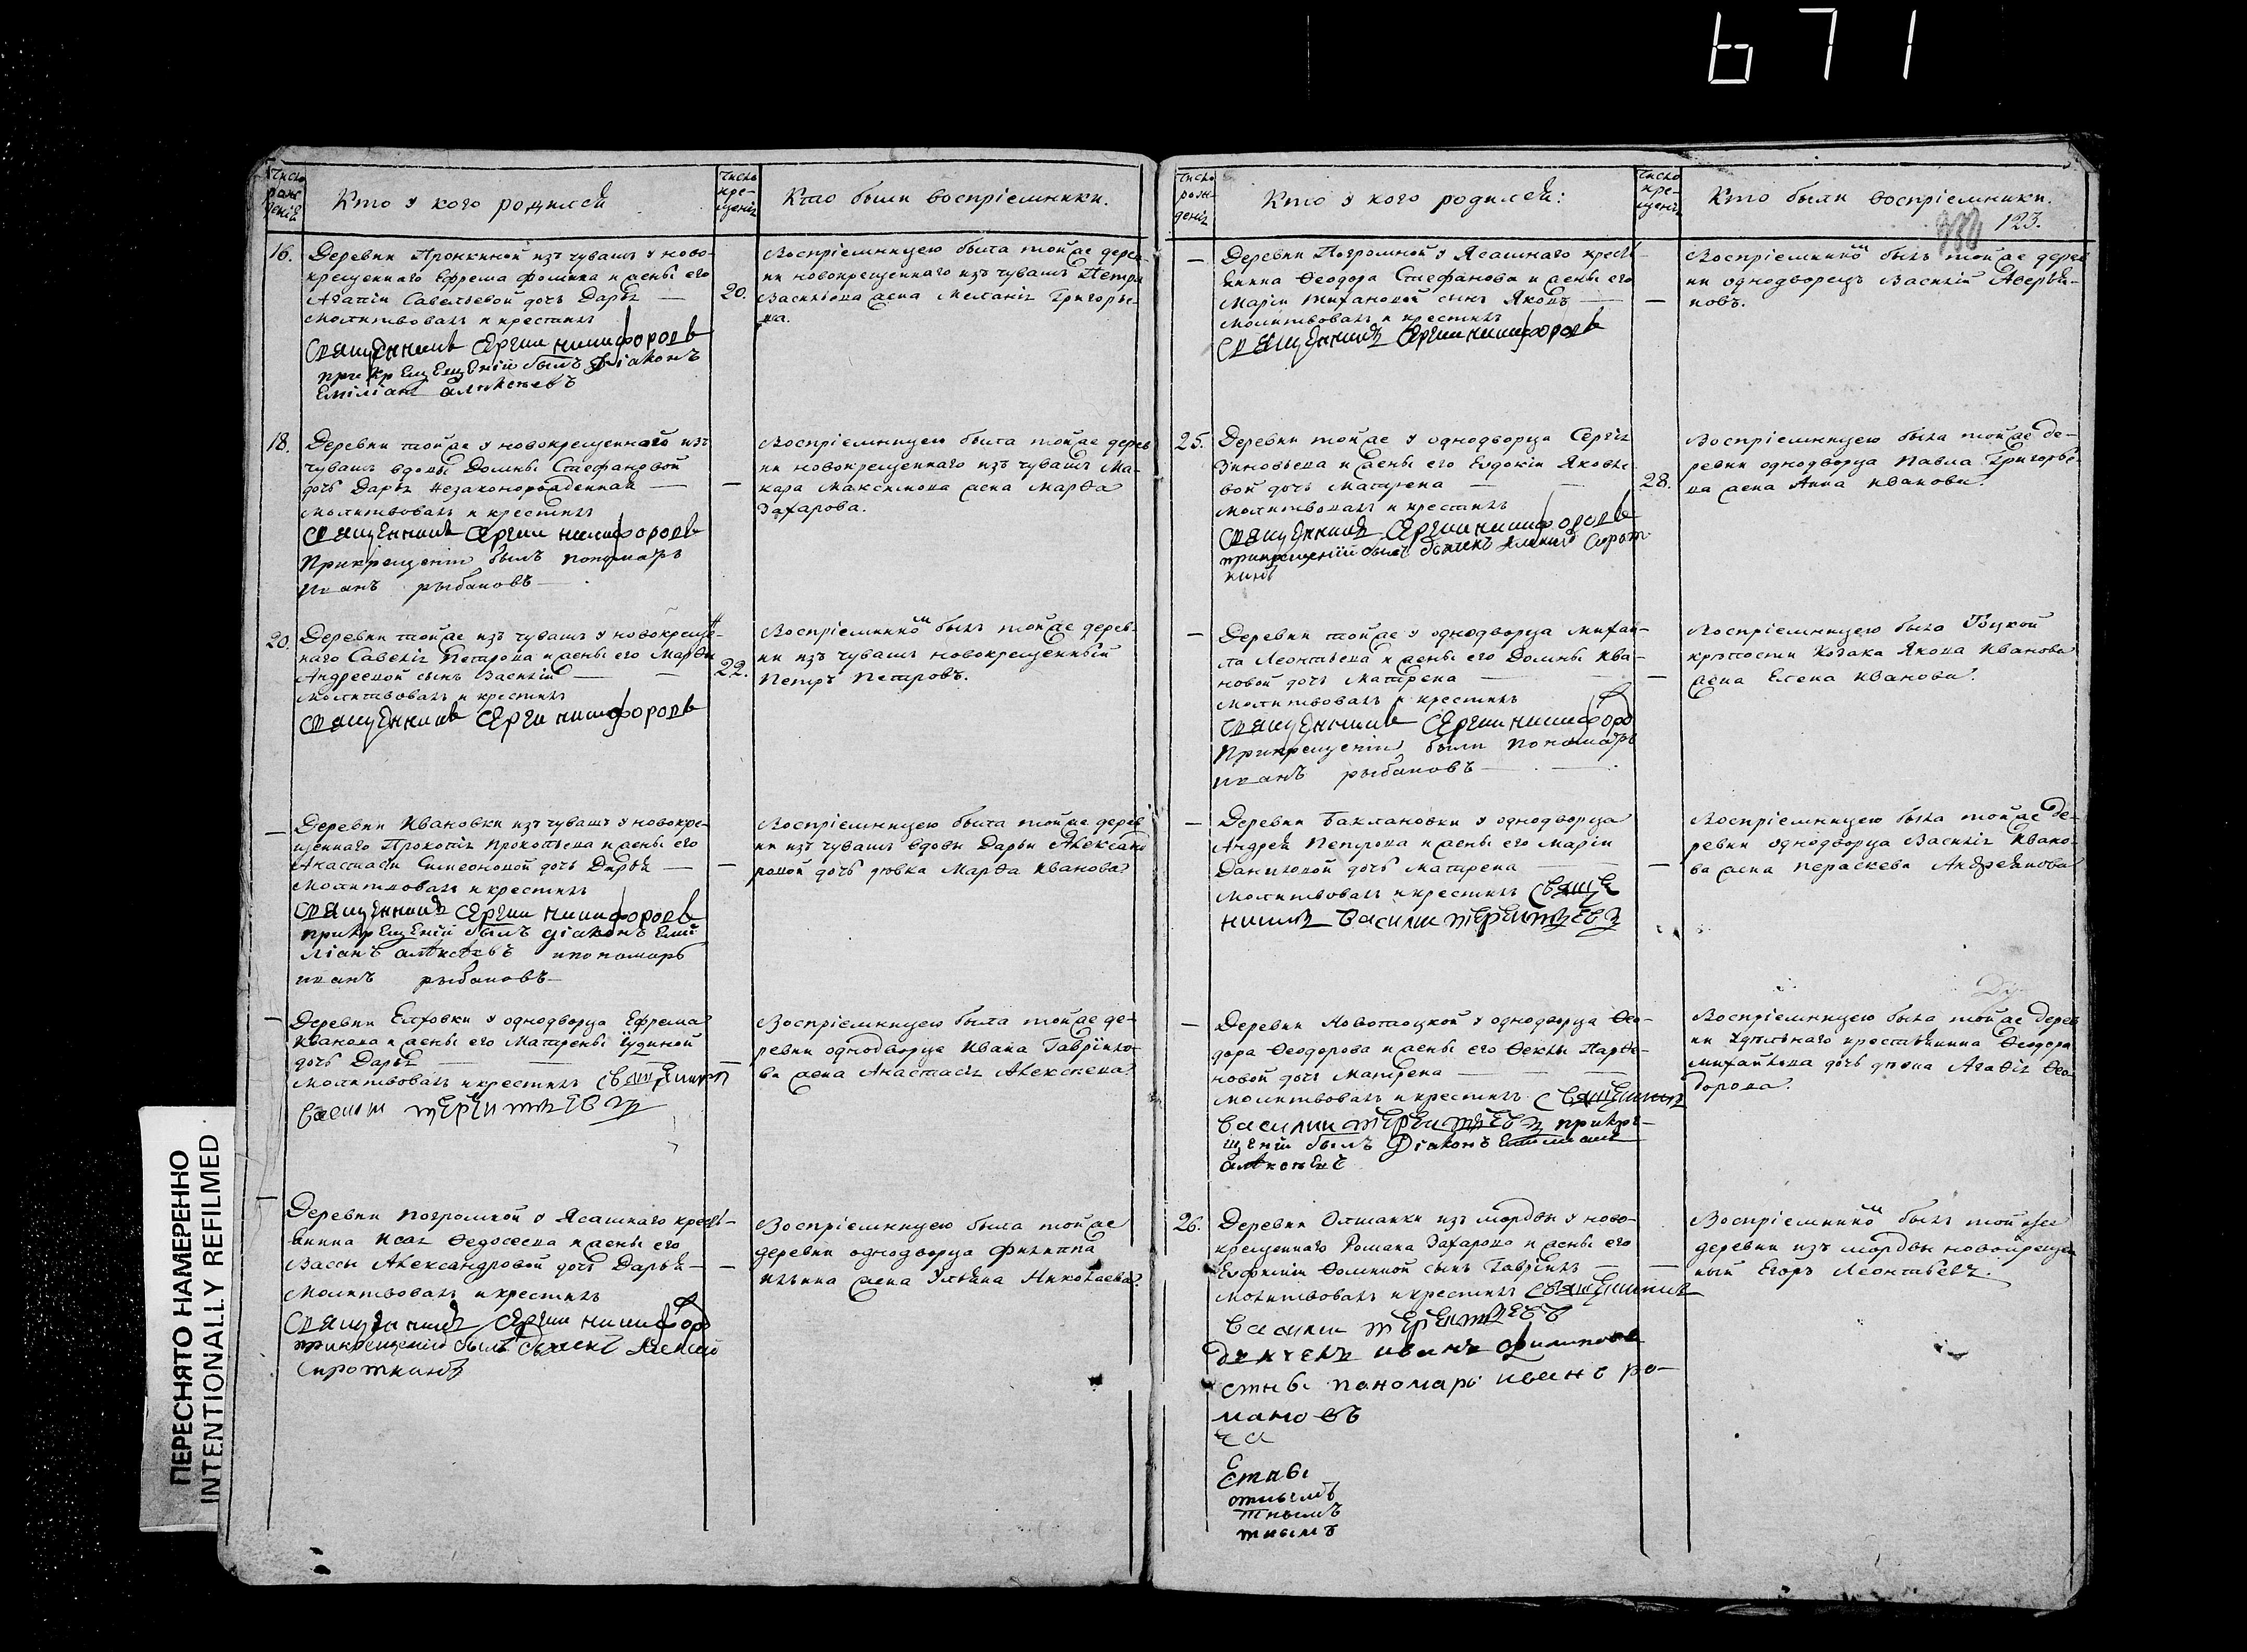 671
Число рождения
Кто у кого родился
Число крещения
Кто были воспріемники.
16.
Деревни Пронкиной изъ чувашъ у ново-
крещеннаго Ефрема Фомина и жены его
Агапіи Савельевой дочь Дарья
Молитвовалъ и крестилъ
Священникъ Сергий Никифоровъ
при крещеніи былъ діаконъ
Емиліанъ Алексѣевъ
20.
Воспріемницею была тойже дерев
ни новокрещеннаго изъ чувашъ Петра
Васильева жена Меланія Григорье-
ва.
18.
Деревни тойже у новокрещенной изъ
чувашъ вдовы Домны Стефановой
дочь Дарья незаконорожденная
Молитвовалъ и крестилъ
Священникъ Сергий Никифоровъ
При крещеніи былъ пономарь
Иванъ Рыбаковъ
Воспріемницею была тойже дерев
ни новокрещеннаго изъ чувашъ Ма-
кара Максимова жена Марѳа
Захарова.
20.
Деревни тойже изъ чувашъ у новокреще-
наго Савелія Петрова и жены его Марѳы
Андреевой сынъ Василій
Молитвовалъ и крестилъ
Священникъ Сергий Никифоровъ
22.
Воспріемникомъ былъ тойже дерев-
ни изъ чувашъ новокрещенный
Петръ Петровъ.
Деревни Ивановки изъ чувашъ у новокре-
щеннаго Прокопія Прокопьева и жены его
Анастасіи Симеоновой дочь Дарья
Молитвовалъ и крестилъ
Священникъ Сергий Никифоровъ
при крещеній былъ діаконъ Еми
ліанъ Алексѣевъ и пономарь
Иванъ Рыбаковъ
Воспріемницею была тойже дерев
ни изъ чувашъ вдовы Дарьи Александ
ровой дочь дѣвка Марѳа Иванова
Деревни Елховки у однодворца Ефрема
Иванова и жены его Матрены
дочь Дарья
Молитвовалъ и крестилъ Священникъ
Василий Терентьевъ
Воспріемницею была тойже де-
ревни однодворца Ивана Гаврило-
ва жена Анастасія Алексеева
Деревни Погромной у Ясашнаго кресть-
янина Исая Федосеева и жены его
Вассы Александровой дочь Дарья
Молитвовалъ и крестилъ
Священникъ Сергий Никифоров
при крещеніи былъ дьячекъ Алексей
Сироткинъ
Воспріемницею была тойже
деревни однодворца Филиппа
Ильина жена Ульяна Николаева
Число рождения
Кто у кого родился:
Число крещения
Кто были воспріемники.
123.
Деревни Погромной у Ясашнаго кресть-
янина Ѳеодора Стефанова и жены его
Маріи Тихановой сынъ Яковъ
Молитвовалъ и крестилъ
Священникъ Сергий Никифоровъ
Воспріемникомъ былъ тойже дерев
ни однодворецъ Василій Аверья-
новъ.
25.
Деревни тойже у однодворца Сергія
Зиновьева и жены его Евдокіи Яковле
вой дочь Матрена
Молитвовалъ и крестилъ
Священникъ Сергий Никифоровъ
при крещеніи былъ дьячекъ Алексей Сирот
кинъ
28.
Воспріемницею была тойже де-
ревни однодворца Павла Григорье-
ва жена Анна Иванова
Деревни тойже у однодворца Михаи-
ла Леонтьева и жены его Домны Ива-
новой дочь Матрена
Молитвовалъ и крестилъ
Священникъ Сергий Никифоров
При крещеніи были пономарь
Иванъ Рыбаковъ
Воспріемницею была Бузской
крѣпости Козака Якова Иванова
жена Елена Иванова
Деревни Баклановки у однодворца
Андрея Петрова и жены его Маріи
Даниловой дочь Матрена
Молитвовалъ и крестилъ Священ
никъ Василий Терентьевъ
Воспріемницею была тойже де-
ревни однодворца Василія Ивано-
ва жена Параскева Андреянова
Деревни у однодворца Ѳео-
дора Ѳеодорова и жены его Ѳеклы Парѳе-
новой дочь Матрена
Молитвовалъ и крестилъ Священникъ
Василии Терентьевъ при кре-
щеній былъ Діаконъ Емилианъ
Алексѣевъ
Воспріемницею была тойже дерев
ни Удѣльнаго крестьянина Ѳеодора
Михайлова дочь дѣвка Агафія Ѳео-
дорова
26.
Деревни Ольшанки изъ мордвы у ново-
крещеннаго Романа Захарова и жены его
Евфиміи Фоминой сынъ Гавріилъ
Молитвовалъ и крестилъ Священникъ
Василии Терентьевъ
Дьячекъ Иванъ Филипповъ
пономарь Иванъ Ро-
мановъ
Воспріемникомъ былъ тойже
деревни изъ мордвы новокрещен
ный Егоръ Леонтьевъ.
ПЕРЕСНЯТО НАМЕРЕННО
INTENTIONALLY REFILMED